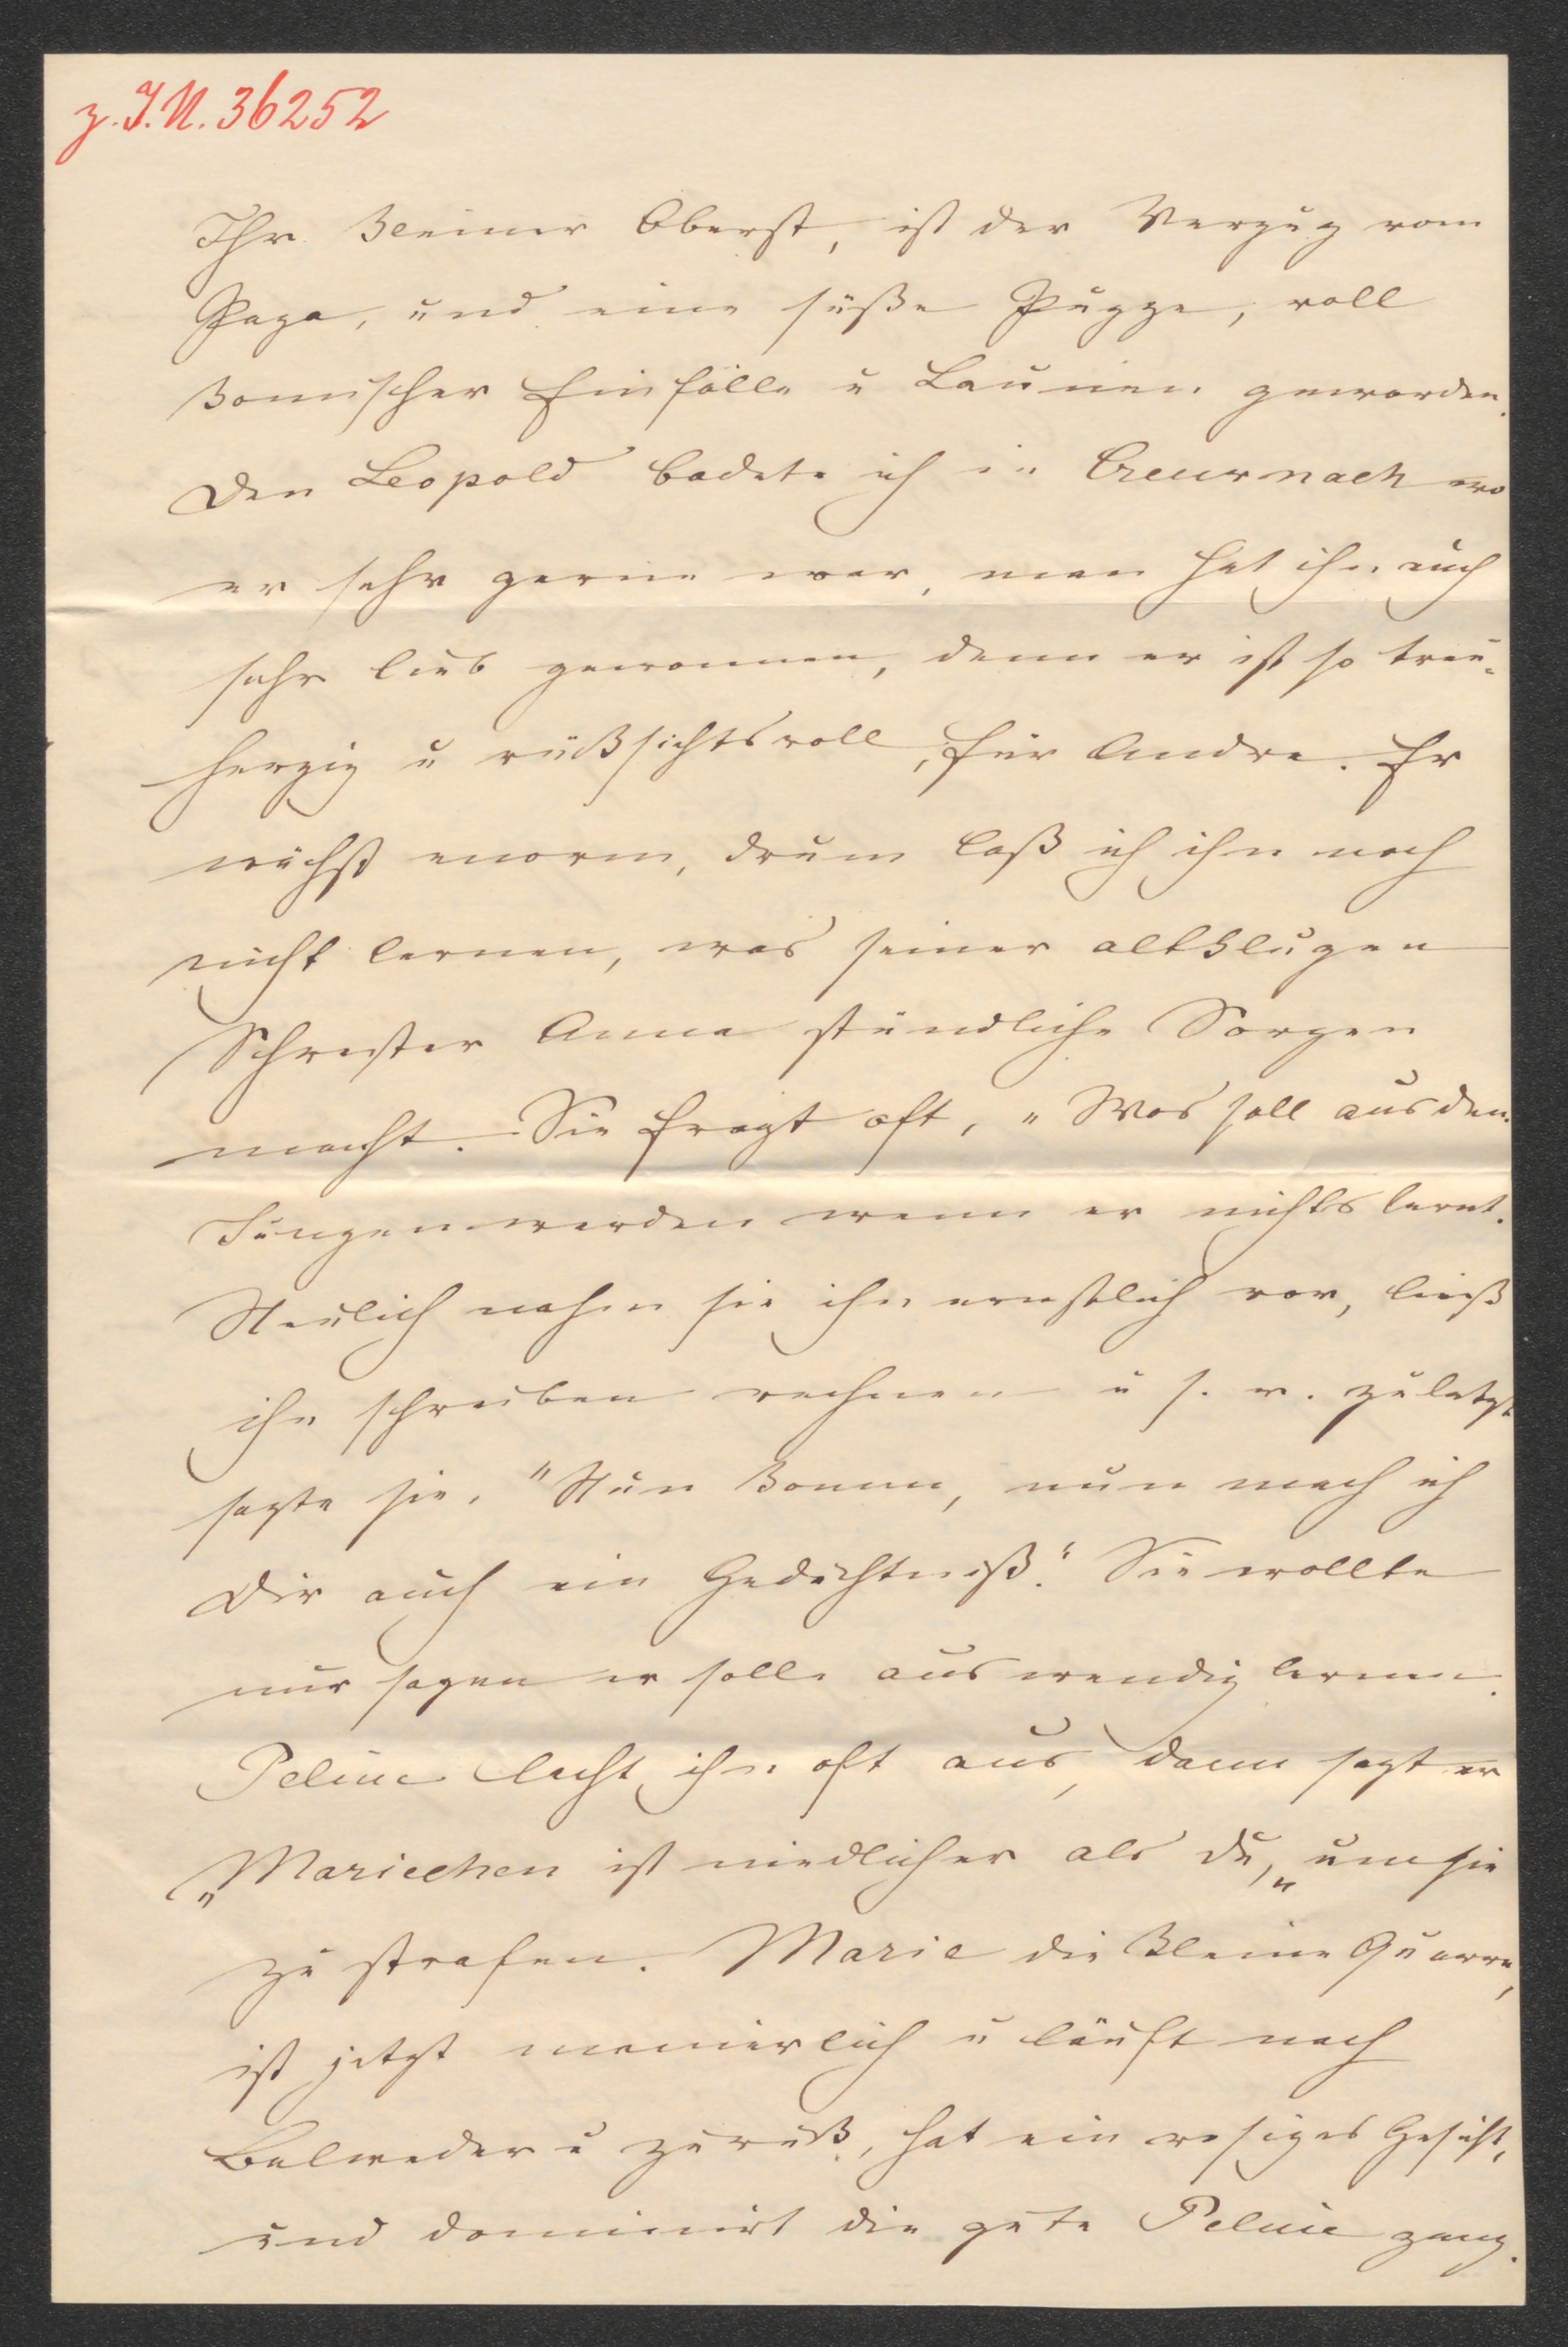 z. J.N. 36252
Ihr kleiner Oberst, ist der Verzug vom
Papa, und eine süße Puppe, voll
komischer Einfälle u Launen geworden.
Den Leopold badete ich in Creuznach wo
er sehr gerne war, man hat ihn auch
sehr lieb gewonnen, denn er ist so treu-
herzig u rücksichtsvoll, für Andre. Er
wächst enorm, drum laß ich ihn noch
nicht lernen, was seiner altklugen
Schwester Anna stündliche Sorgen
macht. Sie fragt oft, "Was soll aus dem
Jungen werden wenn er nichts lernt.
Neulich nahm sie ihn ernstlich vor, ließ
ihn schreiben rechnen u s. w. zuletzt
sagte sie, "Nun komm, nun mach ich
Dir auch ein Gedächtniß." Sie wollte
nur sagen er solle auswendig lernen.
Peline lacht ihn oft aus, dann sagt er
„Mariechen ist niedlicher als du," um sie
zu strafen. Marie die kleine Quarre,
ist jetzt manierlich u läuft nach
Belweder u zurück, hat ein rosiges Gesicht,
und dominirt die gute Peline ganz.